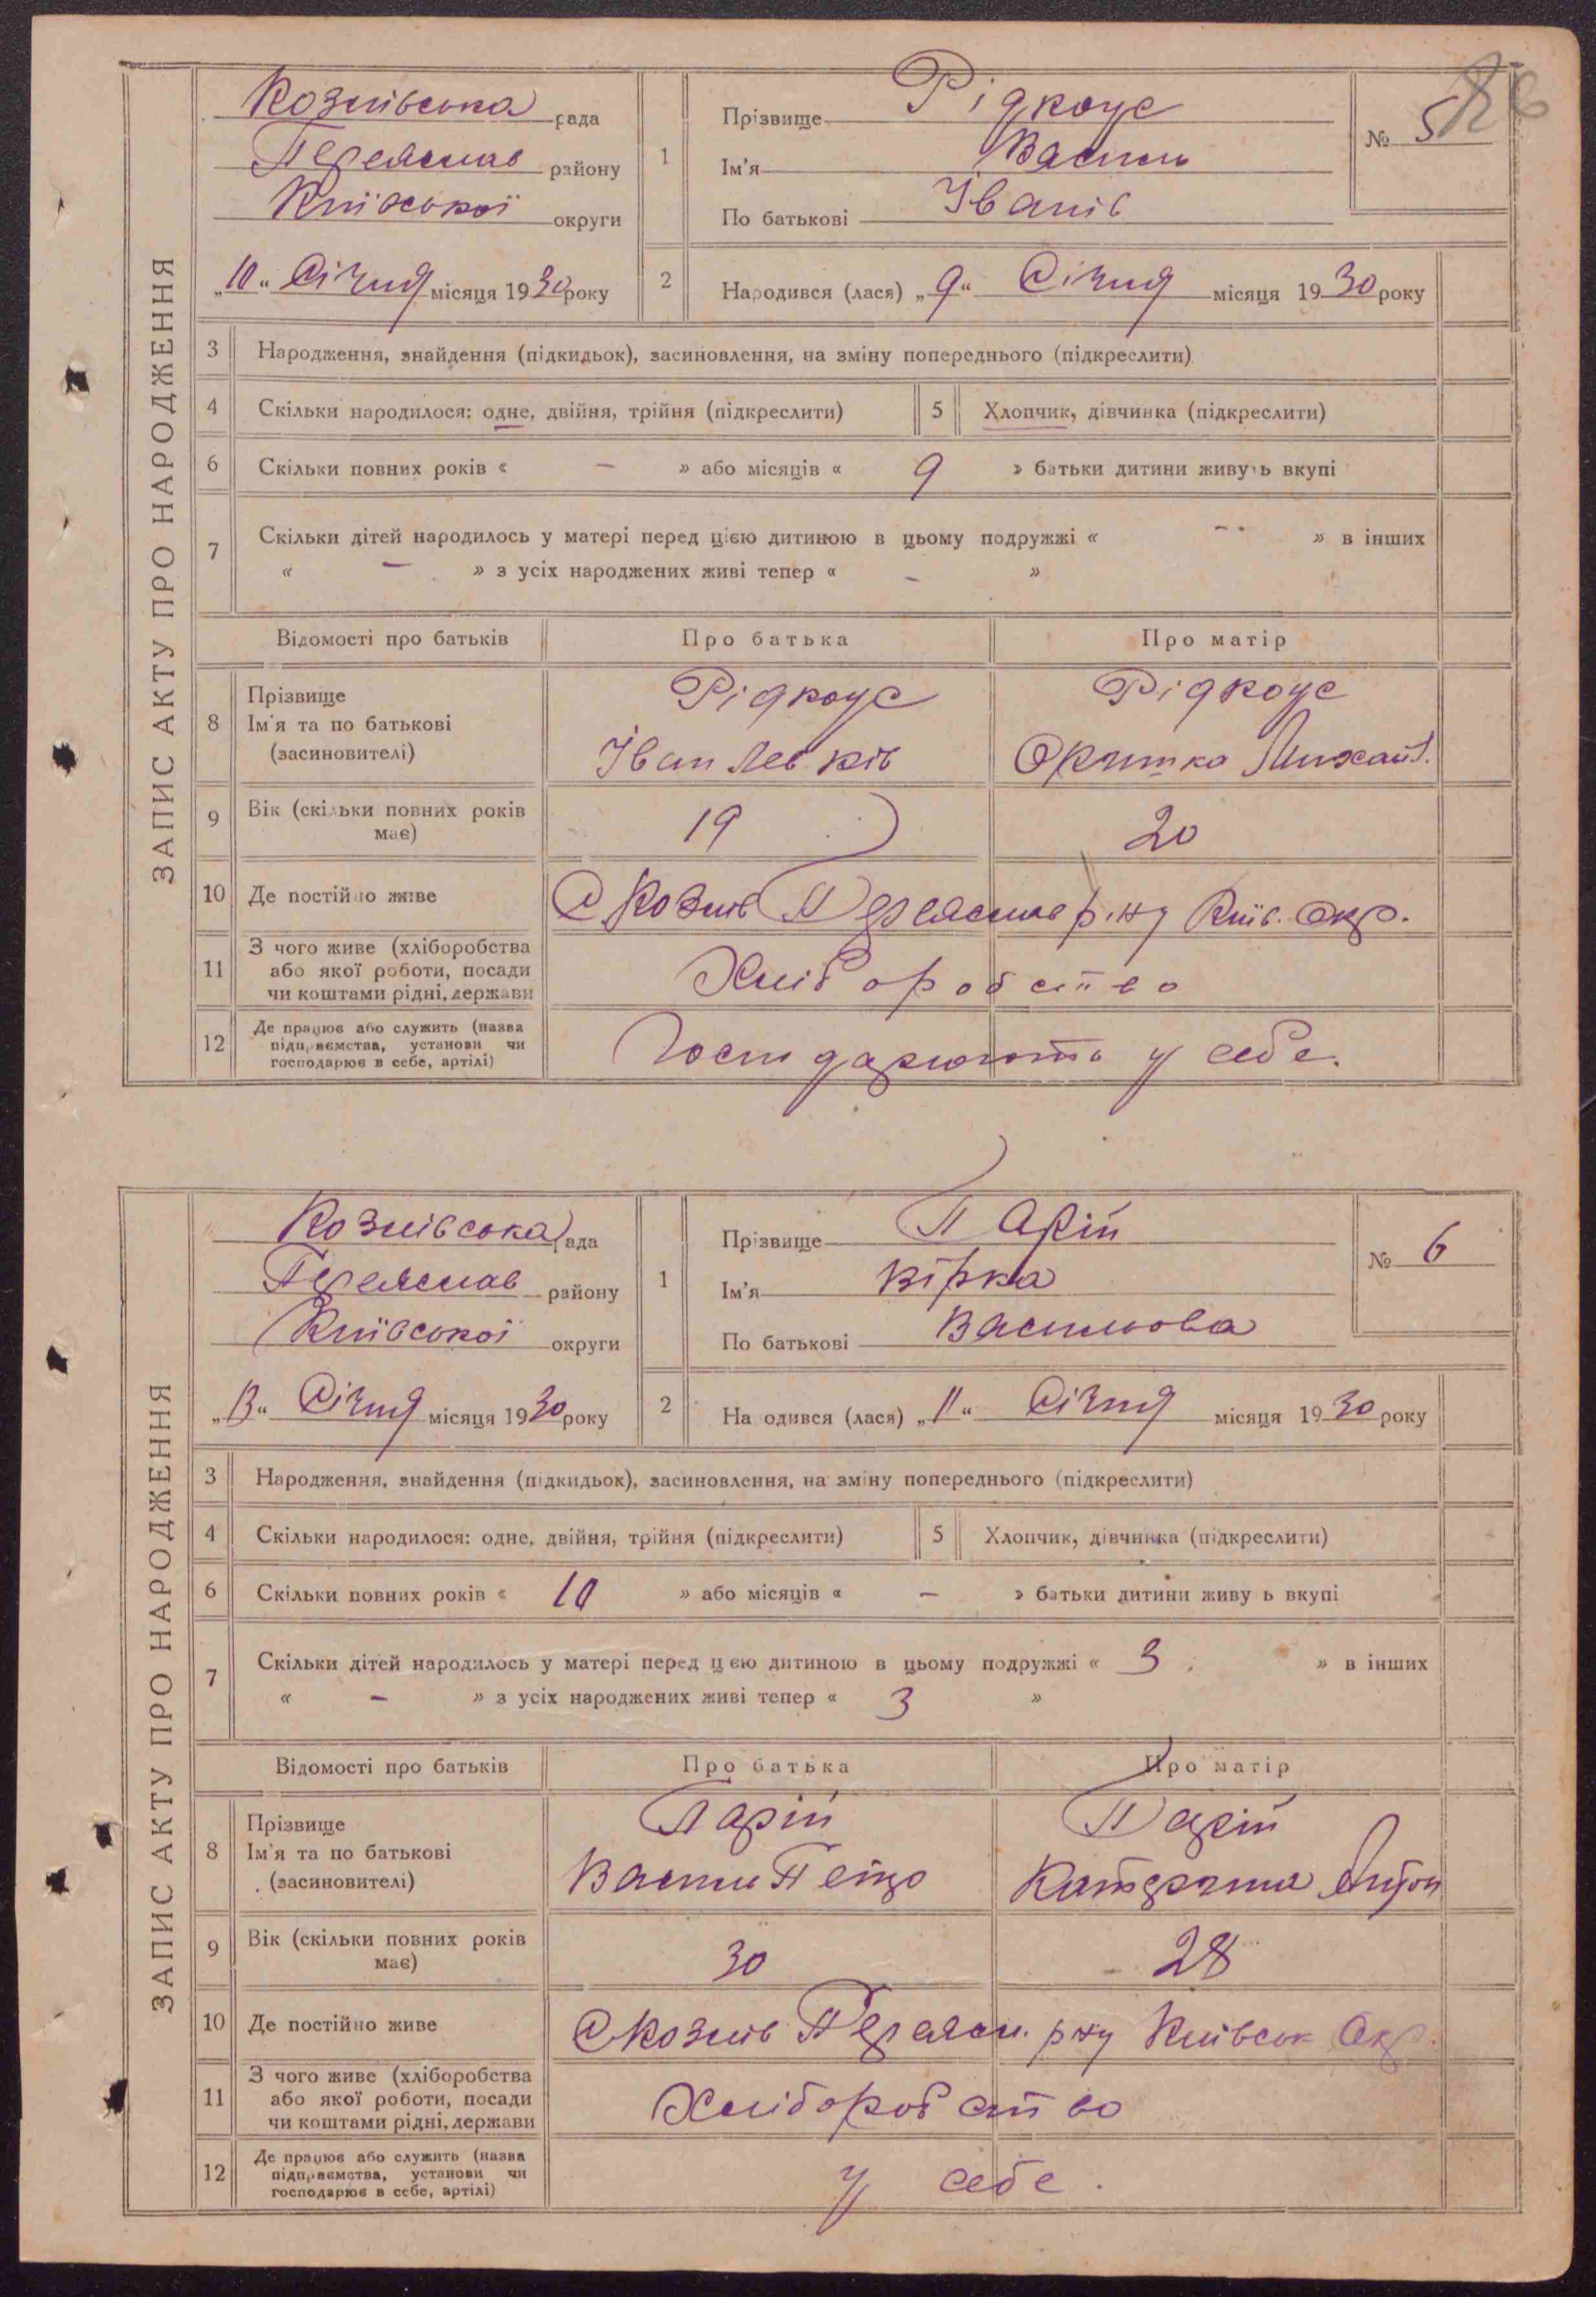 ЗАПИС АКТУ ПРО НАРОДЖЕННЯ
Козлівська рада
Переяслав району
Київської округи
„10“ Січня місяця 1930 року
1
Прізвище Рідкоус
Ім'я Василь
По батькові Іванів
№ 5
2
Народився (лася) „9“ Січня місяця 1930 року
3 Народження, знайдення (підкидьок), засиновлення, на зміну попереднього (підкреслити)
4 Скільки народилося: одне, двійня, трійня (підкреслити)
5 Хлопчик, дівчинка (підкреслити)
6 Скільки повних років « — » або місяців « 9 » батьки дитини живуть вкупі
7 Скільки дітей народилось у матері перед цією дитиною в цьому подружжі « — » в інших
« — » з усіх народжених живі тепер « — »
Відомості про батьків Про батька Про матір
8 Прізвище
Ім'я та по батькові
(засиновителі)
Рідкоус
Іван Левків
Рідкоус
Оришка Михайл.
9 Вік (скільки повних років
має)
19 20
10 Де постійно живе С Козлів Переяслав р-ну Київ. Окр.
11 З чого живе (хліборобства
або якої роботи, посади
чи коштами рідні, держави
Хліборобство
12 Де працює або служить (назва
підприємства, установи чи
господарює в себе, артілі)
Господарюють у себе.
ЗАПИС АКТУ ПРО НАРОДЖЕННЯ
Козлівська рада
Переяслав району
Київської округи
„13“ Січня місяця 1930 року
1
Прізвище Парій
Ім'я Вірка
По батькові Васильова
№ 6
2
На одився (лася) „11“ Січня місяця 1930 року
3 Народження, знайдення (підкидьок), засиновлення, на зміну попереднього (підкреслити)
4 Скільки народилося: одне, двійня, трійня (підкреслити)
5 Хлопчик, дівчинка (підкреслити)
6 Скільки повних років « 10 » або місяців « — » батьки дитини живу ь вкупі
7 Скільки дітей народилось у матері перед ц єю дитиною в цьому подружжі « 3 » в інших
« — » з усіх народжених живі тепер « 3 »
Відомості про батьків Про батька Про матір
8 Прізвище
Ім'я та по батькові
(засиновителі)
Парій
Васил Петро
Парій
Катерина Антон
9 Вік (скільки повних років
має)
30 28
10 Де постійно живе С Козлів Переясл. р-ну Київськ Окр.
11 З чого живе (хліборобства
або якої роботи, посади
чи коштами рідні, держави
Хліборобство
12 Де працює або служить (назва
підприємства, установи чи
господарює в себе, артілі)
у себе.